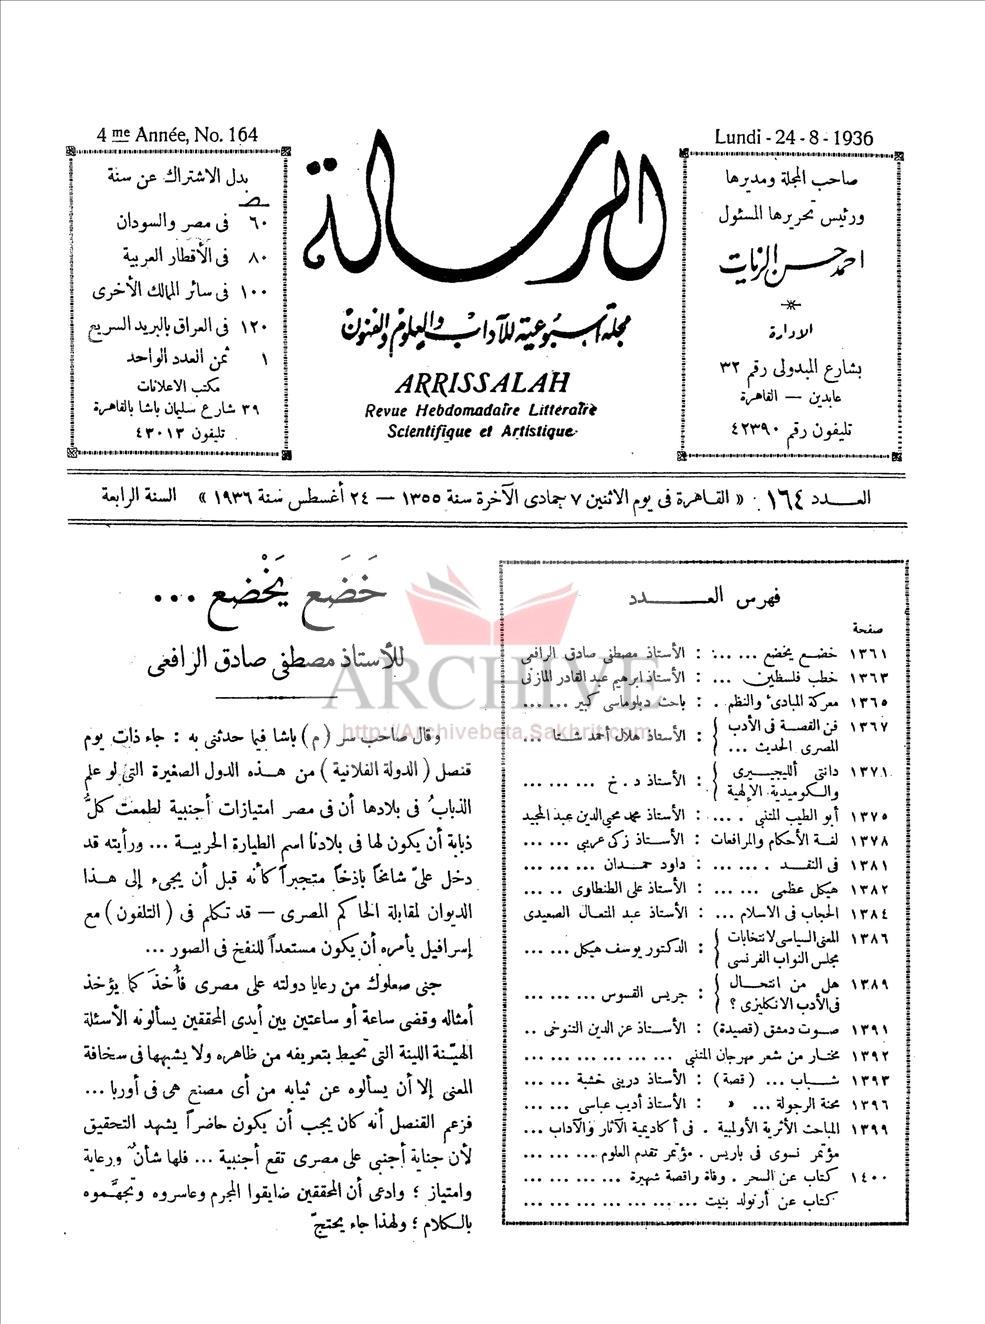 4me Année, No. 164
Lundi - 24 - 8 - 1936
صاحب المجلة ومديرها
ورئيس تحريرها المسئول
احمد حسن الزيات
الادارة
بشارع المبدولى رقم ٣٢
عابدين — القاهرة
تليفون رقم ٤٢٣٩٠
الرسالة
مجلة أسبوعية للآداب والعلوم والفنون
ARRISSALAH
Revue Hebdomadaire Littéraire
Scientifique et Artistique
بدل الاشتراك عن سنة
٦٠ فى مصر والسودان
٨٠ فى الأقطار العربية
١٠٠ فى سائر الممالك الأخرى
١٢٠ فى العراق بالبريد السريع
١ ثمن العدد الواحد
مكتب الاعلانات
٣٩ شارع سليمان باشا بالقاهرة
تليفون ٤٣٠١٣
العـــدد ١٦٤ « القاهرة فى يوم الاثنين ٧ جمادى الآخرة سنة ١٣٥٥ — ٢٤ أغسطس سنة ١٩٣٦ » السنة الرابعة
فهرس العـــــدد
صفحة
١٣٦١ خضـع يخضع ... ... : الأستاذ مصطفى صادق الرافعى
١٣٦٣ خطب فلسطين ... : الأستاذ ابرهيم عبد القادر المازنى
١٣٦٥ معركة المبادئ والنظم . : باحث دبلوماسى كبير ... ...
١٣٦٧ فن القصة فى الأدب المصرى الحديث ... : الأستاذ هلال أحمد شـتا ...
١٣٧١ دانتى ألليجييرى والكوميدية الإلهية : الأستاذ د . خ ... ... ...
١٣٧٥ أبو الطيب المتنبى . ... : الأستاذ محمد محيى الدين عبد المجيد
١٣٧٨ لغـة الأحكام والمرافعات : الأسـتاذ زكى عريبى ... ...
١٣٨١ فى النقـد . ... ... : داود حمـدان ... ... ...
١٣٨٢ هيكل عظمى ... ... : الأستاذ على الطنطاوى .. ...
١٣٨٤ الحجاب فى الاسلام ... : الأستاذ عبد المتعال الصعيدى
١٣٨٦ المعنى السياسى لانتخابات مجلس النواب الفرنسى : الدكتور يوسف هيكل ... ...
١٣٨٩ هل من انتحـال فى الأدب الانكليزى ؟ : جريس القسوس ... ... ...
١٣٩١ صـوت دمشق (قصيدة) : الأسـتاذ عز الدين التنوخى ..
١٣٩٢ مختـار من شعر مهرجان المتنبى ... ... ... ... ... ...
١٣٩٣ شـــباب ... (قصة) : الأستاذ درينى خشبة ... ...
١٣٩٦ محنة الرجولة ... » : الأستاذ أديب عباسى ... ...
١٣٩٩ المباحث الأثرية الأولمبية . فى أكاديمية الآثار والآداب ...
مؤتمر نسوى فى باريس . مؤتمر تقدم العلوم ... ... ...
١٤٠٠ كتاب عن السحر . وفاة راقصة شهيرة ... ... ... ...
كتاب عن أرنولد بنيت ... ... ... ... ... ...
خَضَع يَخْضع ...
للأستاذ مصطفى صادق الرافعى
وقال صاحب سر (م) باشا فيما حدثنى به : جاء ذات يوم
قنصل (الدولة الفلانية) من هـذه الدول الصغيرة التى لو علم
الذبابُ فى بلادها أن فى مصر امتيازات أجنبية لطمعت كلُّ
ذبابة أن يكون لها فى بلادنا اسم الطيارة الحربيـة ... ورأيته قد
دخل علىّ شامخاً باذخاً متجبراً كأنه قبل أن يجىء إلى هـذا
الديوان لمقابلة الحاكم المصرى — قد تكلم فى (التلفون) مع
إسرافيل يأمره أن يكون مستعداً للنفخ فى الصور ...
جنى صعلوك من رعايا دولته على مصرى فأُخذَ كما يؤخذ
أمثاله وقضى ساعة أو ساعتين بين أيدى المحققين يسألونه الأسئلة
الهيّنـة اللينة التى تحيط بتعريفه من ظاهره ولا يشبهها فى سخافة
المعنى إلا أن يسألوه عن ثيابه من أى مصنع هى فى أوربا ...
فزعم القنصل أنه كان يجب أن يكون حاضراً يشهد التحقيق
لأن جناية أجنبى على مصرى تقع أجنبية ... فلها شأنٌ ورعاية
وامتياز ؛ وادعى أن المحققين ضايقوا المجرم وعاسروه وتجهّموه
بالكلام ؛ ولهذا جاء يحتجّ
ARCHIVE
http://Archivebeta.Sakhrit.com